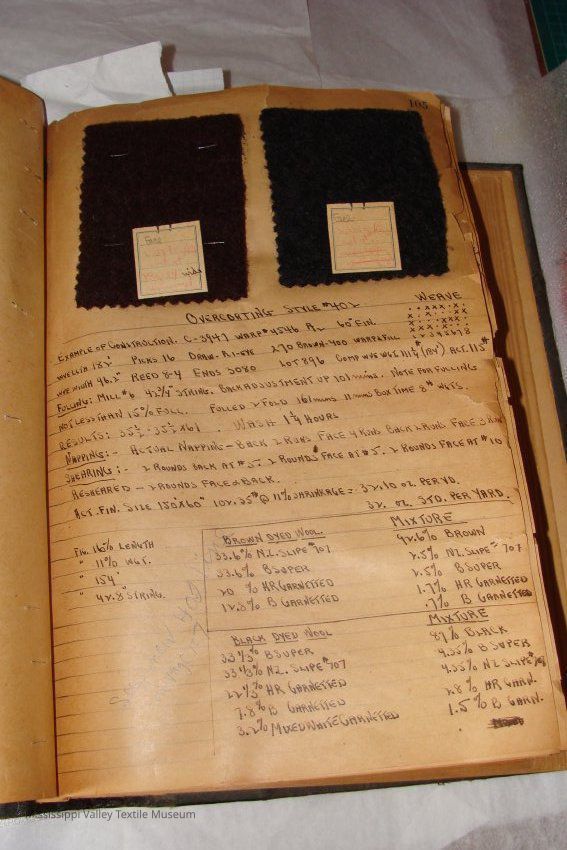 105
Face
Face
OVERCOATING STYLE #402
WEAVE
EXAMPLE OF CONSTRUCTION. C-3947 WARP #4546 A2 60" FIN.
PICKS 16 DRAW. 270 BROWN-400 WARP & FILL
WIDTH 96.2" REED 8-4 ENDS 3080 LOT 896 COMP WVE WGT. ACT. 115#
FULLING: MILL #6 STRING. BACK ADJUSTMENT UP 101 MINS. NOTE FOR FULLING
NOT LESS THAN 15% FULL. FULLED 2 FOLD 161 MINS 11 MINS BOX TIME 8" WGTS.
RESULTS: WASH 1¼ HOURS
NAPPING:- ACTUAL NAPPING - BACK 2 RUNS FACE 4 RUNS BACK 2 RUNS FACE 3 RUNS
SHEARING:- 2 ROUNDS BACK AT #5. 2 ROUNDS FACE AT #5. 2 ROUNDS FACE AT #10
RESHEARED - 2 ROUNDS FACE & BACK.
ACT. FIN. SIZE 150X60" 102.35# @ 11% SHRINKAGE = 32.10 OZ. PER YD.
32. OZ. STD. PER YARD.
16% LENGTH
" 11% WGT.
" 154"
" 42.8" STRING.
BROWN DYED WOOL.
33.6% N.Z. SLIPE #707
33.6% B SUPER
20 % HR GARNETTED
12.8% B GARNETTED
MIXTURE
92.6% BROWN
2.5% NZ. SLIPE #707
2.5% B SUPER
1.7% HR GARNETTED
.7% B GARNETTED
BLACK DYED WOOL
33⅓% B SUPER
33⅓% N.Z. SLIPE #707
22⅓% HR GARNETTED
7.8% B GARNETTED
3.2% MIXED WHITE GARNETTED
MIXTURE
87% BLACK
4.35% B SUPER
4.35% NZ SLIPE #707
2.8% HR GARN.
1.5% B GARN.
Mississippi Valley Textile Museum